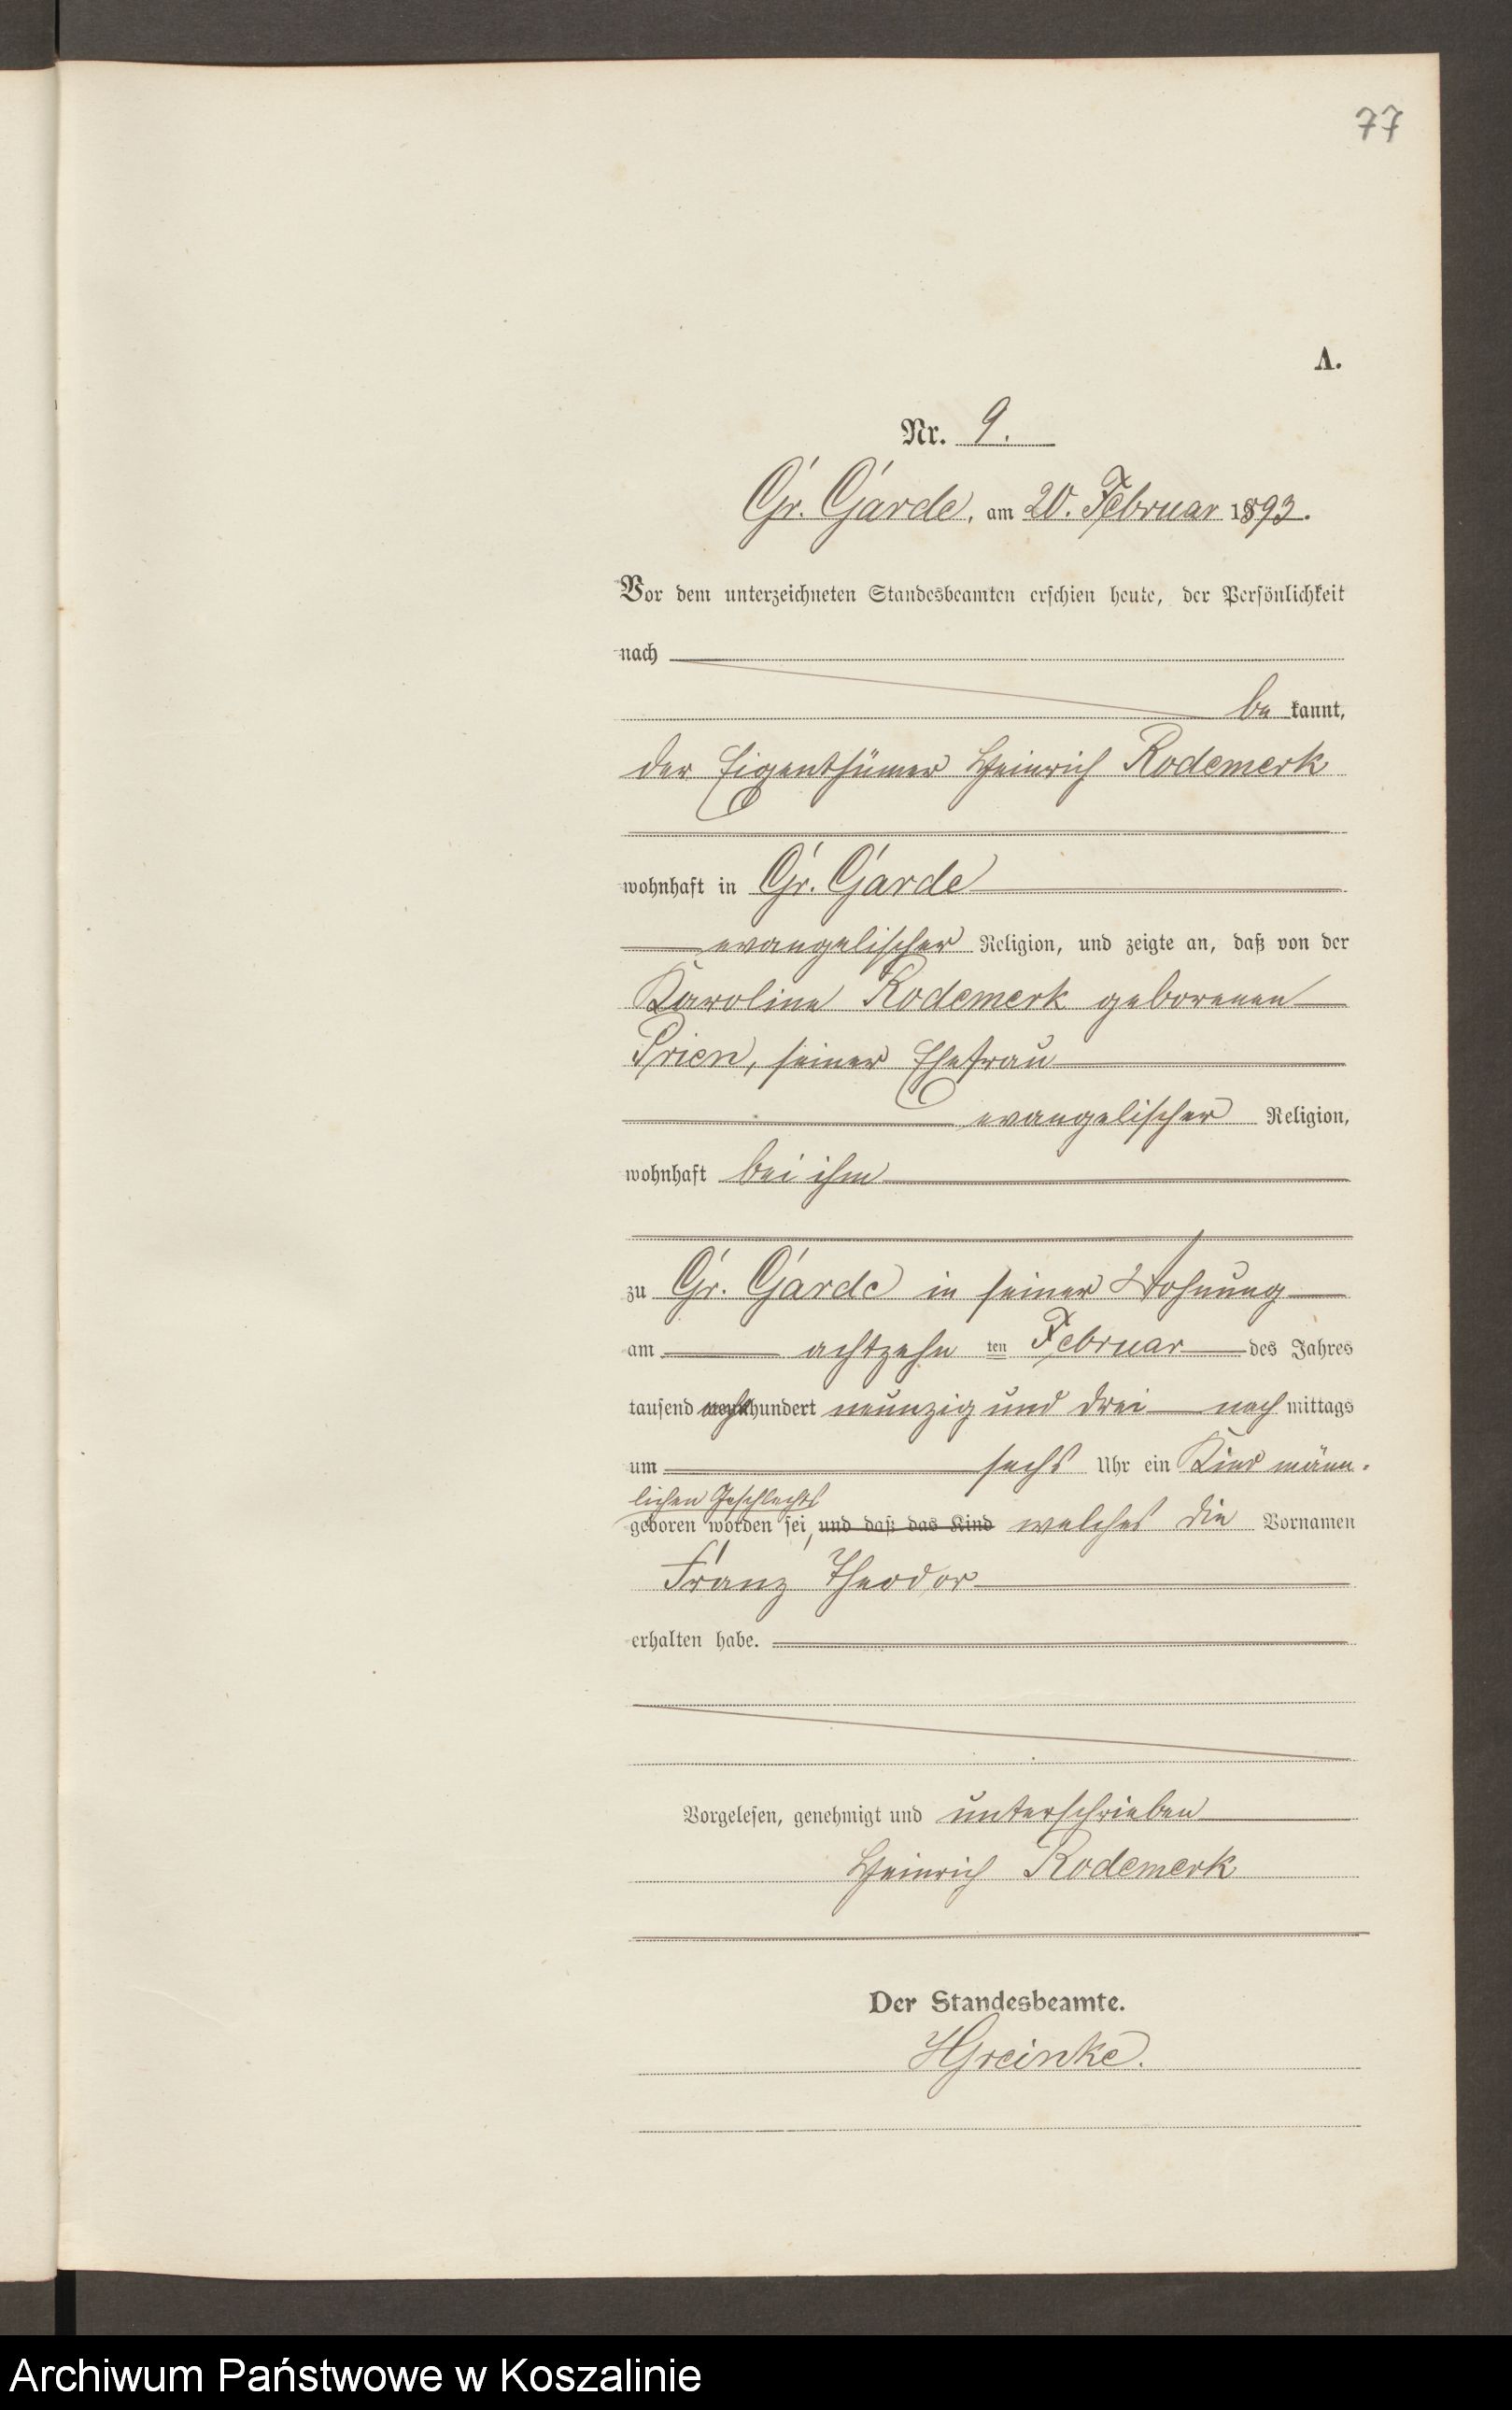 77
A.
Nr. 9.
Gr. Garde, am 20. Februar 1893.
Vor dem unterzeichneten Standesbeamten erschien heute, der Persönlichkeit
nach
be kannt,
der Eigenthümer Heinrich Rodemerk
wohnhaft in Gr. Garde
evangelischer Religion, und zeigte an, daß von der
Karoline Rodemerk geborenen
Prien, seiner Ehefrau
evangelischer Religion,
wohnhaft bei ihm
zu Gr. Garde in seiner Wohnung
am achtzehn ten Februar des Jahres
tausend achthundert neunzig und drei nach mittags
um sechs Uhr ein Kind männ-
lichen Geschlechts
geboren worden sei, und daß das Kind welches die Vornamen
Franz Theodor
erhalten habe.
Vorgelesen, genehmigt und unterschrieben
Heinrich Rodemerk
Der Standesbeamte.
HGreinke.
Archiwum Państwowe w Koszalinie